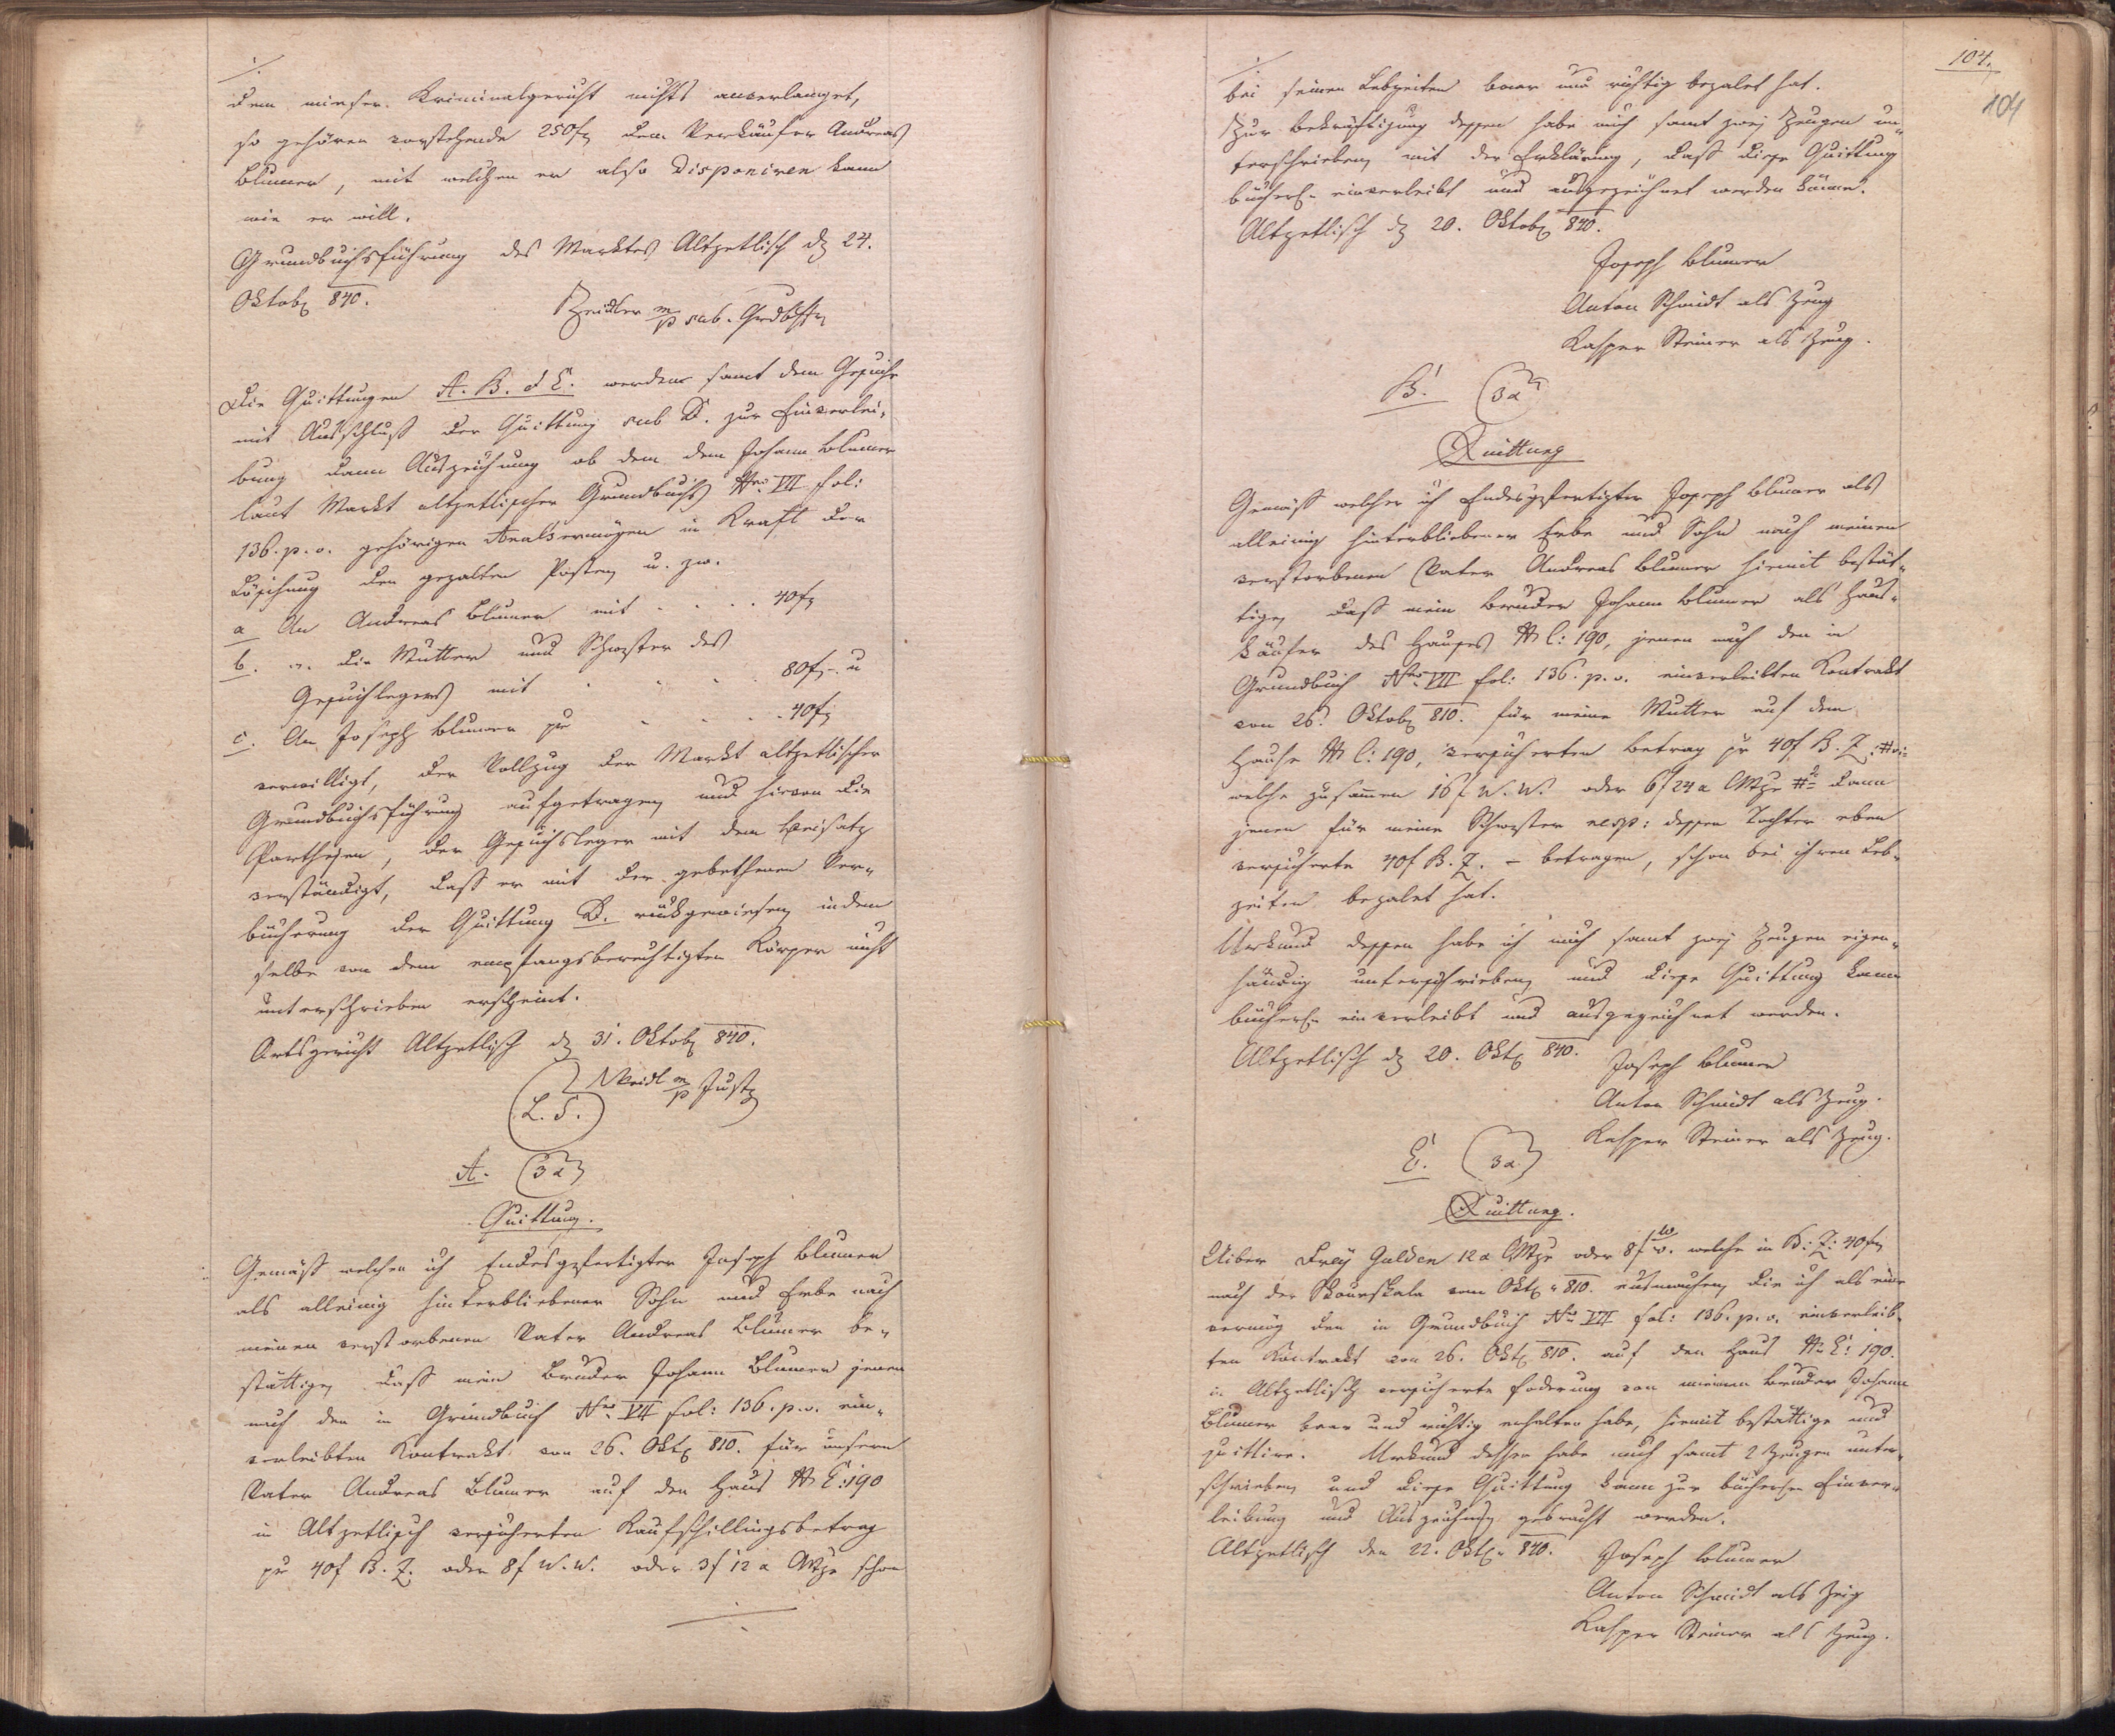 ./.
dem mieser. Kriminalgericht nichts anverlanget,
so gehören vorstehende 250f dem Verkäufer Andreas
Blumer, mit welchen er also Disponiren kann
wie er will.
Grundbuchsführung des Marktes Altzetlisch d 24.
Oktob 840.
Zeidler m/p sub. Grdbfr
Die Quittungen A. B. et C. werden samt dem Gesuche
mit Ausschluß der Quittung sub D. zur Einverlei-
bung dann Auszeichnung ob dem dem Johann Blumer
laut Markt altzetlischer Grundbuchs Nro VII fol:
136. p. v. gehörigen Realvermögen in Kraft der
Löschung der gezalten Posten u. zw.
a An Andreas Blumer mit . . . . 40f
b. " die Mutter und Schwester des
Gesuchlegers mit . . . 80f - u
c. An Joseph Blumer pr . . . 40f
verwilligt, der Vollzug der Markt altzetlischer
Grundbuchsführung aufgetragen und hievon die
Partheyen, der Gesuchsleger mit dem Beisatz
verständigt, daß er mit der gebethenen Ver-
bücherung der Quittung D. rückgewiesen, indem
selbe von dem empfangsberechtigten Körper nicht
unterschrieben erscheint.
Ortsgericht Altzetlisch d 31. Oktob 840.
(L. S.) m/p Justz
A. (3 x)
Quittung.
Gemäß welcher ich Endesgefertigter Joseph Blumer
als alleinig hinterbliebener Sohn und Erbe nach
meinen verstorbenen Vater Andreas Blumer be-
stättige, daß mein Bruder Johann Blumer jenen
nach den in Grundbuch Nro VII fol: 136. p. v. ein-
verleibten Kontrakt von 26. Okt 810. für unsern
Vater Andreas Blumer auf den Haus N C: 190
in Altzetlisch versicherten Kaufschillingsbetrag
pr 40f B. Z. oder 8f W. W. oder 3f 12 x CMze schon
./.
104.
104
./.
bei seinen Lebzeiten baar und richtig bezalet hat.
Zur Bekräftigung dessen habe mich samt zwej Zeugen un-
terschrieben, mit der Erklärung, daß diese Quittung
bücherl. einverleibt und ausgezeichnet werden könne.
Altzetlisch d 20. Oktob 840.
Joseph Blumer
Anton Schmidt als Zeug
Kasper Steiner als Zeug.
B. (3 x)
Quittung
Gemäß welcher ich Endesgefertigter Joseph Blumer als
alleinig hinterbliebener Erbe und Sohn nach meinen
verstorbenen Vater Andreas Blumer hiemit bestät-
tige, daß mein Bruder Johann Blumer als Haus-
käufer des Hauses N C: 190, jenen nach den in
Grundbuch Nro VII fol: 136. p. v. einverleibten Kontrakt
von 26. Oktob 810. für meine Mutter auf dem
Hause N C: 190, versicherten Betrag pr 40f B. Z.
welche zusammen 16f W. W. oder 6f 24 x CMze dann
jenen für meine Schwester resp: dessen Tochter eben
versicherte 40f B. Z. - betragen, schon bei ihren Leb-
zeiten bezalet hat.
Urkund dessen habe ich mich samt zwej Zeugen eigen-
händig unterschrieben, und diese Quittung kann
bücherl. einverleibt und ausgezeichnet werden.
Altzetlisch d 20. Okt 840.
Joseph Blumer
Anton Schmidt als Zeug.
Kasper Steiner als Zeug.
C. (3 x)
Quittung.
Uiber Drey Gulden 12 x CMze oder 8f W. W. welche in B: Z: 40f
nach der Skourskala vom Okt 810. ausmachen, die ich als eine
vermög den in Grundbuch Nro VII fol: 136. p. v. einverleib-
ten Kontrakt von 26. Okt 810. auf den Haus N C: 190.
in Altzetlisch versicherte Foderung von meinem Bruder Johann
Blumer baar und richtig erhalten habe, hiemit bestättige und
quittire. Urkund dessen habe mich samt 2 Zeugen unter-
schrieben, und diese Quittung kann zur bücherl. Einver-
leibung und Auszeichnung gebracht werden.
Altzetlisch den 22. Okt 840.
Joseph Blumer
Anton Schmidt als Zeig
Kasper Steiner als Zeug.